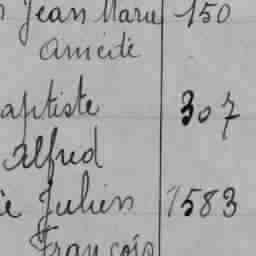 Jean Marie 150
Amédé
aptiste 307
Alfred
ie Julien 1583
François